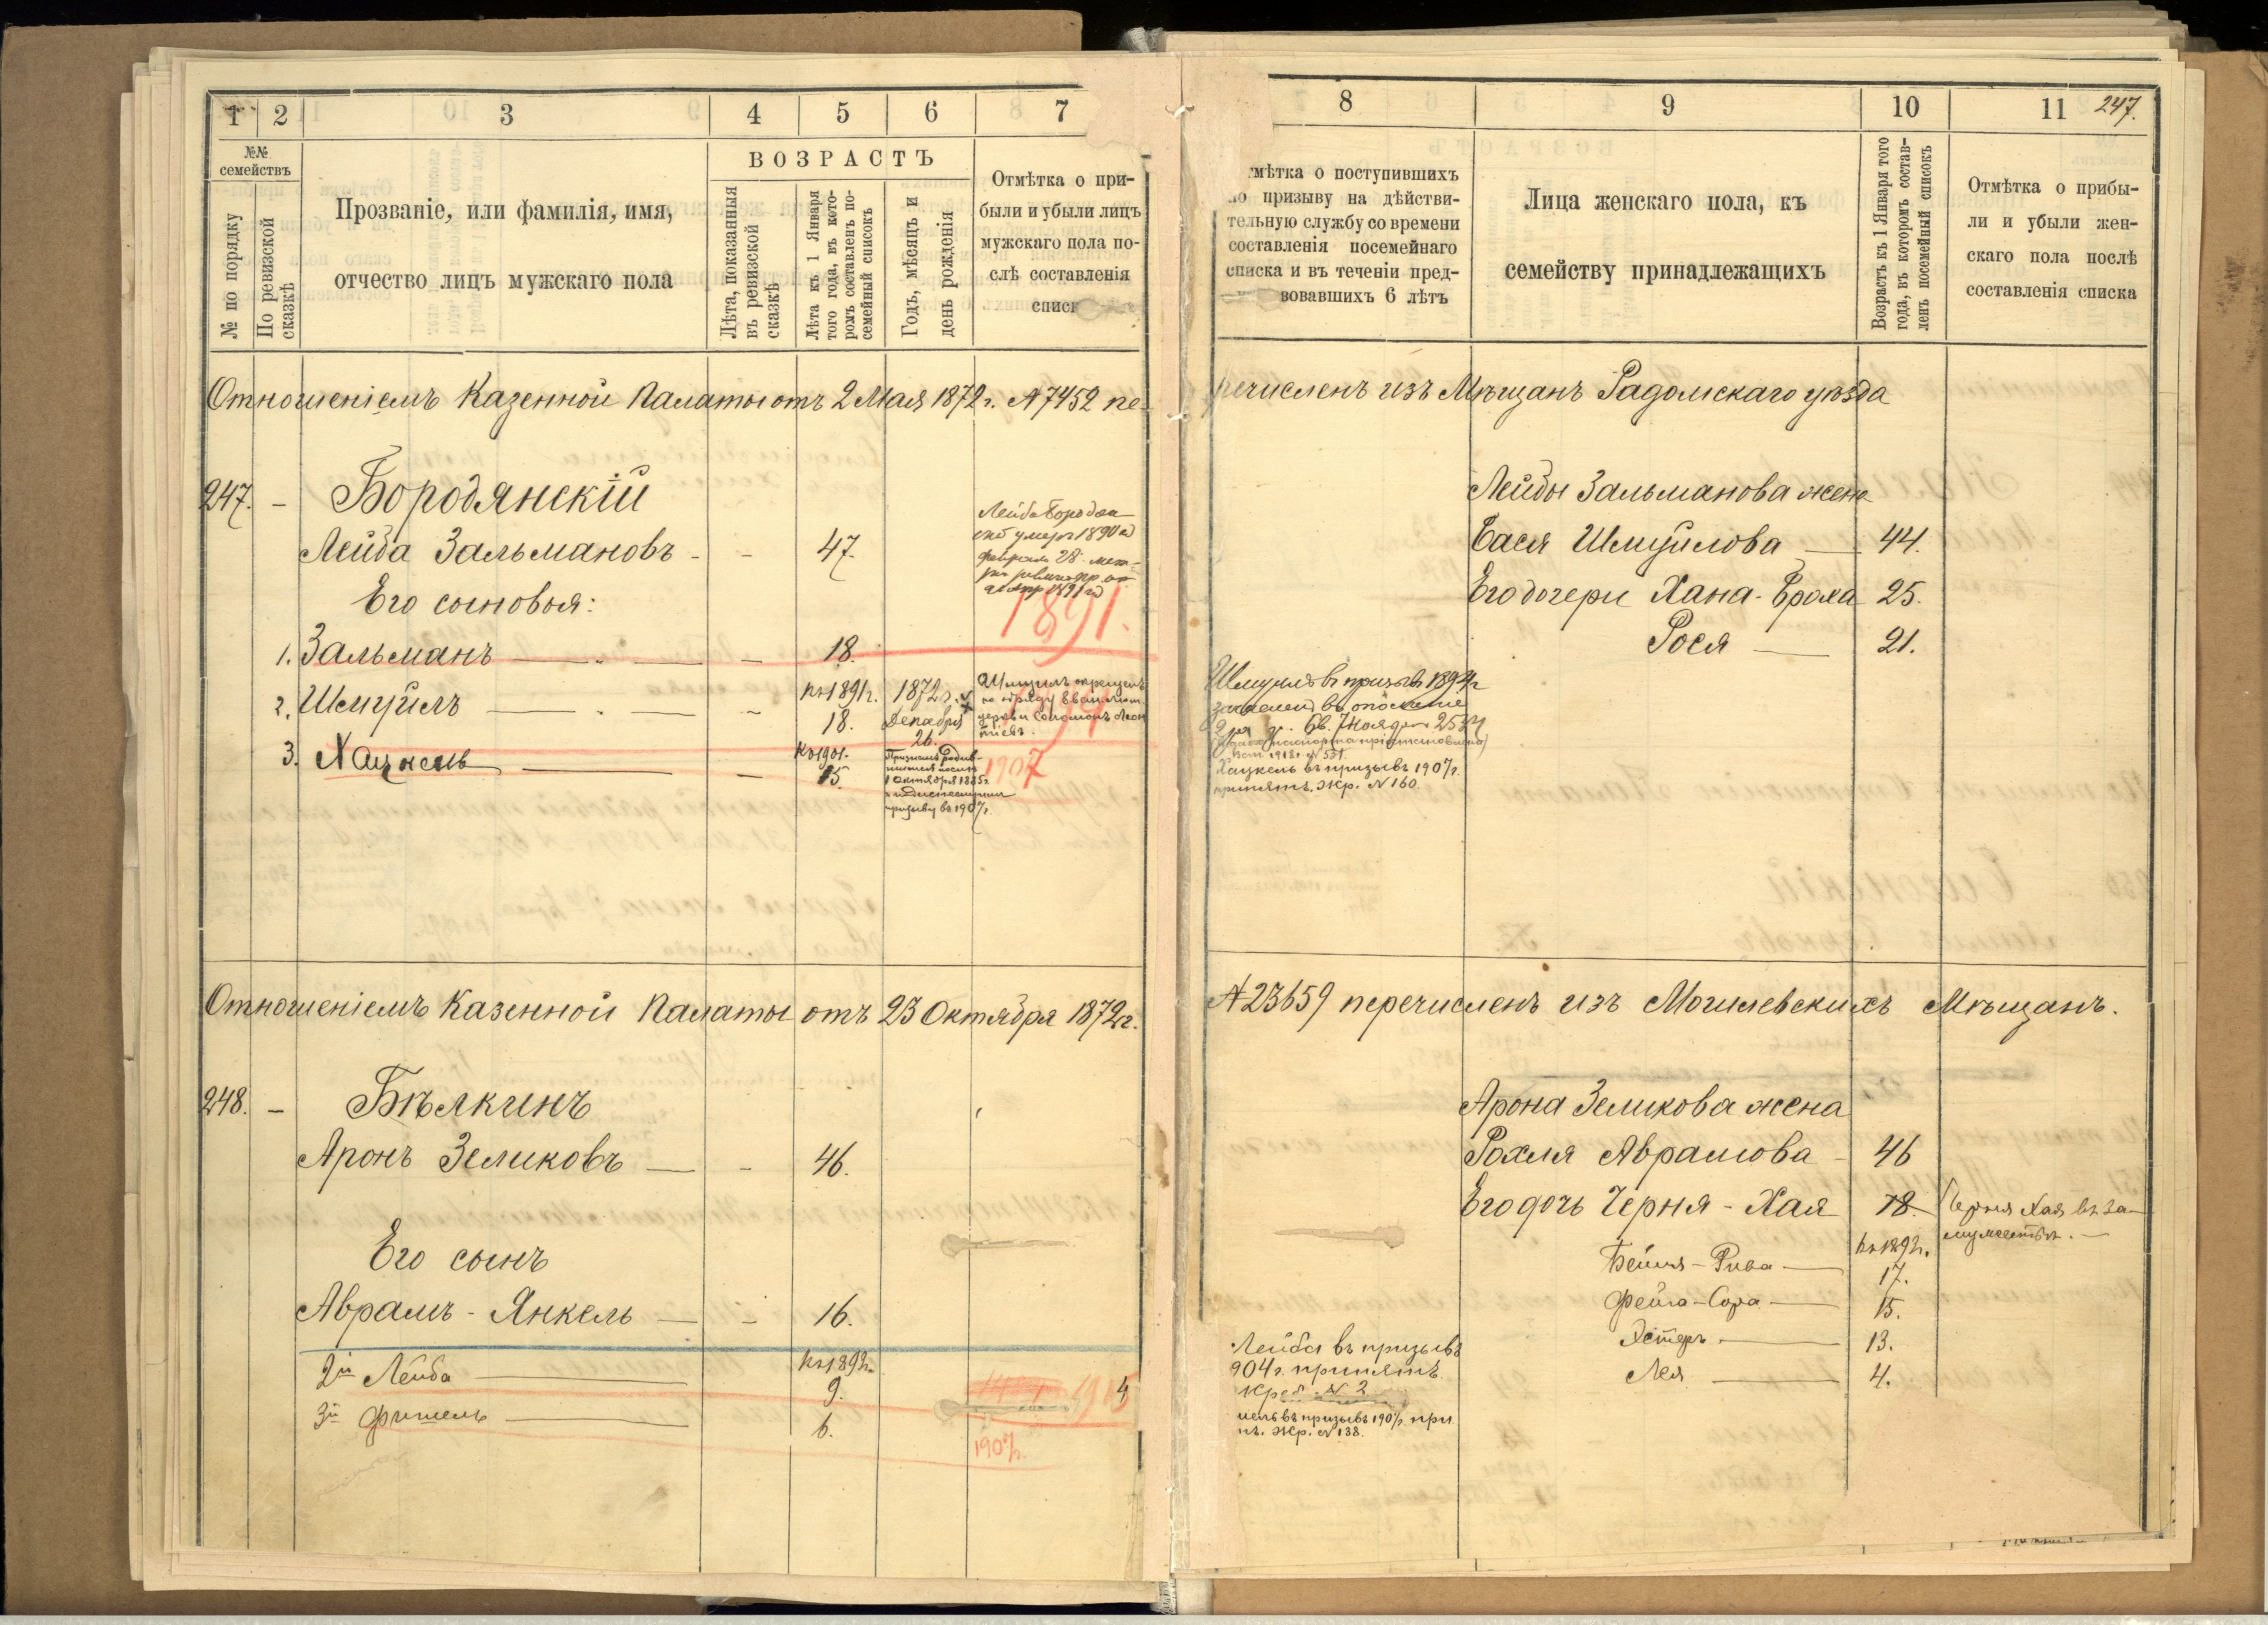 1 2 3 4 5 6 7
№№ семействъ
№ по порядку
По ревизской сказкѣ
Прозваніе, или фамилія, имя,
отчество лицъ мужскаго пола
ВОЗРАСТЪ
Лѣта, показанныя
въ ревизской
сказкѣ
Лѣта къ 1 Января
того года, въ кото-
ромъ составленъ по-
семейный списокъ
Годъ, мѣсяцъ и
день рожденія
Отмѣтка о при-
были и убыли лицъ
мужскаго пола по-
слѣ составленія
списк
Отношеніемъ Казенной Палаты отъ 2 Мая 1872 г. № 7452 пе-
247. - Бородянскій
Лейба Зальмановъ - - 47.
Лейба Бородян
умеръ 1890
28
1891
Его сыновья:
1891.
1. Зальманъ — — - 18.
2. Шмуйлъ — — - къ 1891 г. 18. 1872 г. Декабря 26.
Шмуилъ
1894
3. Хацкель — - 15.
1 Октября 1885 г.
призыву въ 1907 г.
1907
Отношеніемъ Казенной Палаты отъ 23 Октября 1872 г.
248. - Бѣлкинъ
Аронъ Зеликовъ — - 46.
Его сынъ
Аврамъ - Янкель — - 16.
2й Лейба — къ 1892 г. 9.
3й Фишель — 6.
1907 г.
8 9 10 11 247.
мѣтка о поступившихъ
по призыву на дѣйстви-
тельную службу со времени
составленія посемейнаго
списка и въ теченіи пред-
вовавшихъ 6 лѣтъ
Лица женскаго пола, къ
семейству принадлежащихъ
Возрастъ къ 1 Января того
года, въ которомъ состав-
ленъ посемейный списокъ
Отмѣтка о прибы-
ли и убыли жен-
скаго пола послѣ
составленія списка
речисленъ изъ Мѣщанъ Радомскаго уѣзда
Лейбы Зальманова жена
Бася Шмуйлова — 44.
Его дочери Хана - Броха 25.
Рося — 21.
Шмуилъ въ призывъ 1894 г
Хацкель въ призывъ 1907 г.
принятъ. Жр. № 160.
№ 23659 перечисленъ изъ Могилевскихъ Мѣщанъ.
Арона Зеликова жена
Рохля Аврамова - 46
Его дочь Черня - Хая 18.
Черня Хая въ за-
мужествѣ. —
къ 1892 г.
Бейля - Рива — 17.
Фейга - Сора — 15.
Эстеръ — 13.
Лея — 4.
Лейба въ призывъ
904 г. принятъ.
Жреб. № 2
пель въ призывъ 1907 г. при
тъ. Жр. № 138.